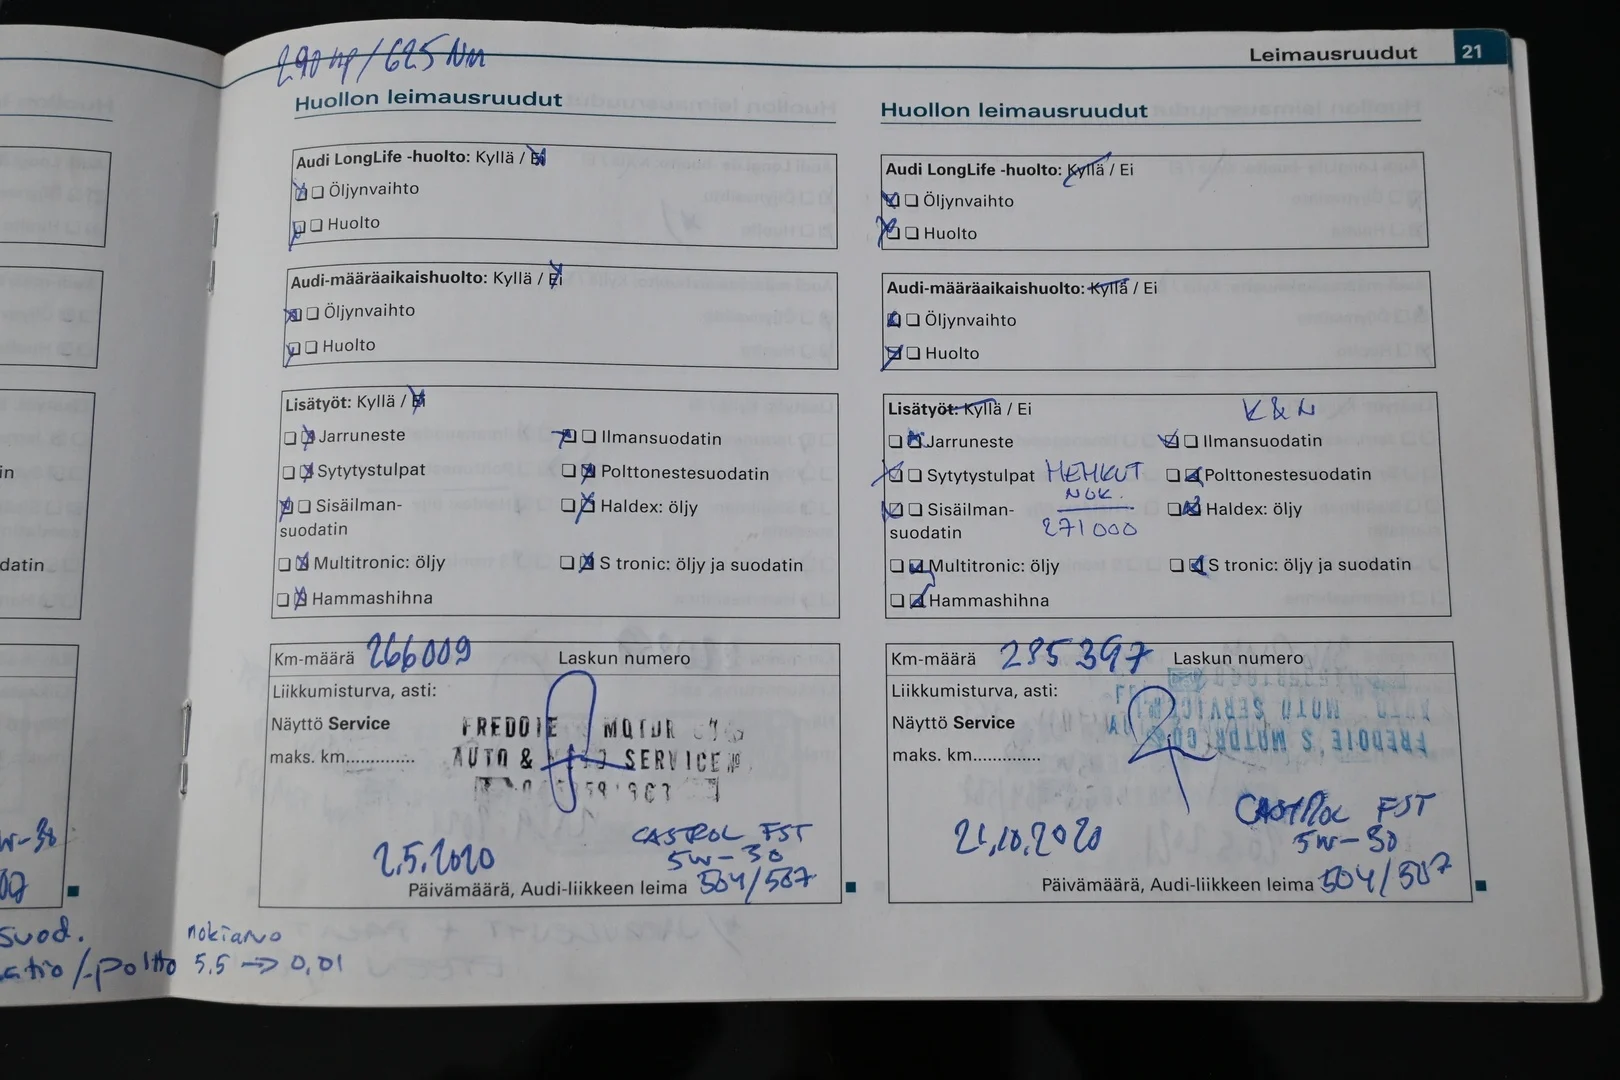 Leimausruudut 21
290 hp / 625 Nm
Huollon leimausruudut
Audi LongLife -huolto: Kyllä / Ei
Öljynvaihto
Huolto
Audi-määräaikaishuolto: Kyllä / Ei
Öljynvaihto
Huolto
Lisätyöt: Kyllä / Ei
Jarruneste
Ilmansuodatin
Sytytystulpat
Polttonestesuodatin
Sisäilman-
suodatin
Haldex: öljy
Multitronic: öljy
S tronic: öljy ja suodatin
Hammashihna
Km-määrä 266009 Laskun numero
Liikkumisturva, asti:
Näyttö Service
maks. km..............
FREDDIE MOTOR
AUTO & SERVICE
2.5.2020
CASTROL FST
5W-30
504/507
Päivämäärä, Audi-liikkeen leima
Huollon leimausruudut
Audi LongLife -huolto: Kyllä / Ei
Öljynvaihto
Huolto
Audi-määräaikaishuolto: Kyllä / Ei
Öljynvaihto
Huolto
Lisätyöt: Kyllä / Ei
K&N
Jarruneste
Ilmansuodatin
Sytytystulpat HEHKUT
Polttonestesuodatin
NOK.
271000
Sisäilman-
suodatin
Haldex: öljy
Multitronic: öljy
S tronic: öljy ja suodatin
Hammashihna
Km-määrä 285397 Laskun numero
Liikkumisturva, asti:
Näyttö Service
maks. km..............
FREDDIE'S MOTOR CO
AUTO MOTO SERVICE
21.10.2020
CASTROL FST
5W-30
504/507
Päivämäärä, Audi-liikkeen leima
in
datin
W-30
07
suod.
/-poltto
nokiano
5.5 -> 0,01